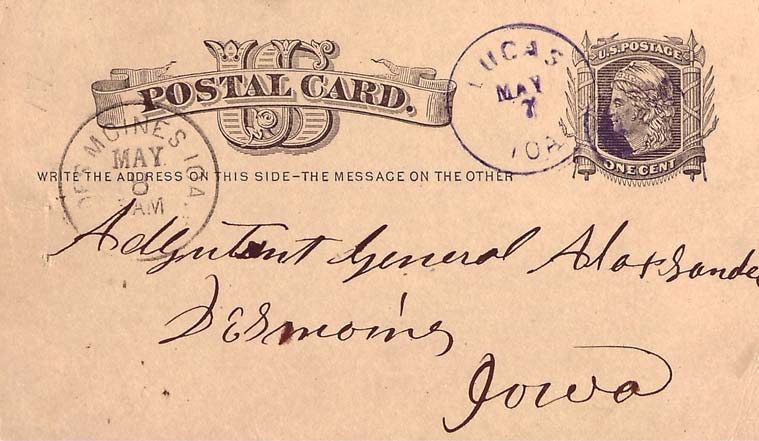 U.S. POSTAGE
ONE CENT
US
POSTAL CARD.
LUCAS
MAY
7
IOA
DES MOINES IOA.
MAY
AM
WRITE THE ADDRESS ON THIS SIDE–THE MESSAGE ON THE OTHER
Adjutent General Alexander
Desmoins
Iowa